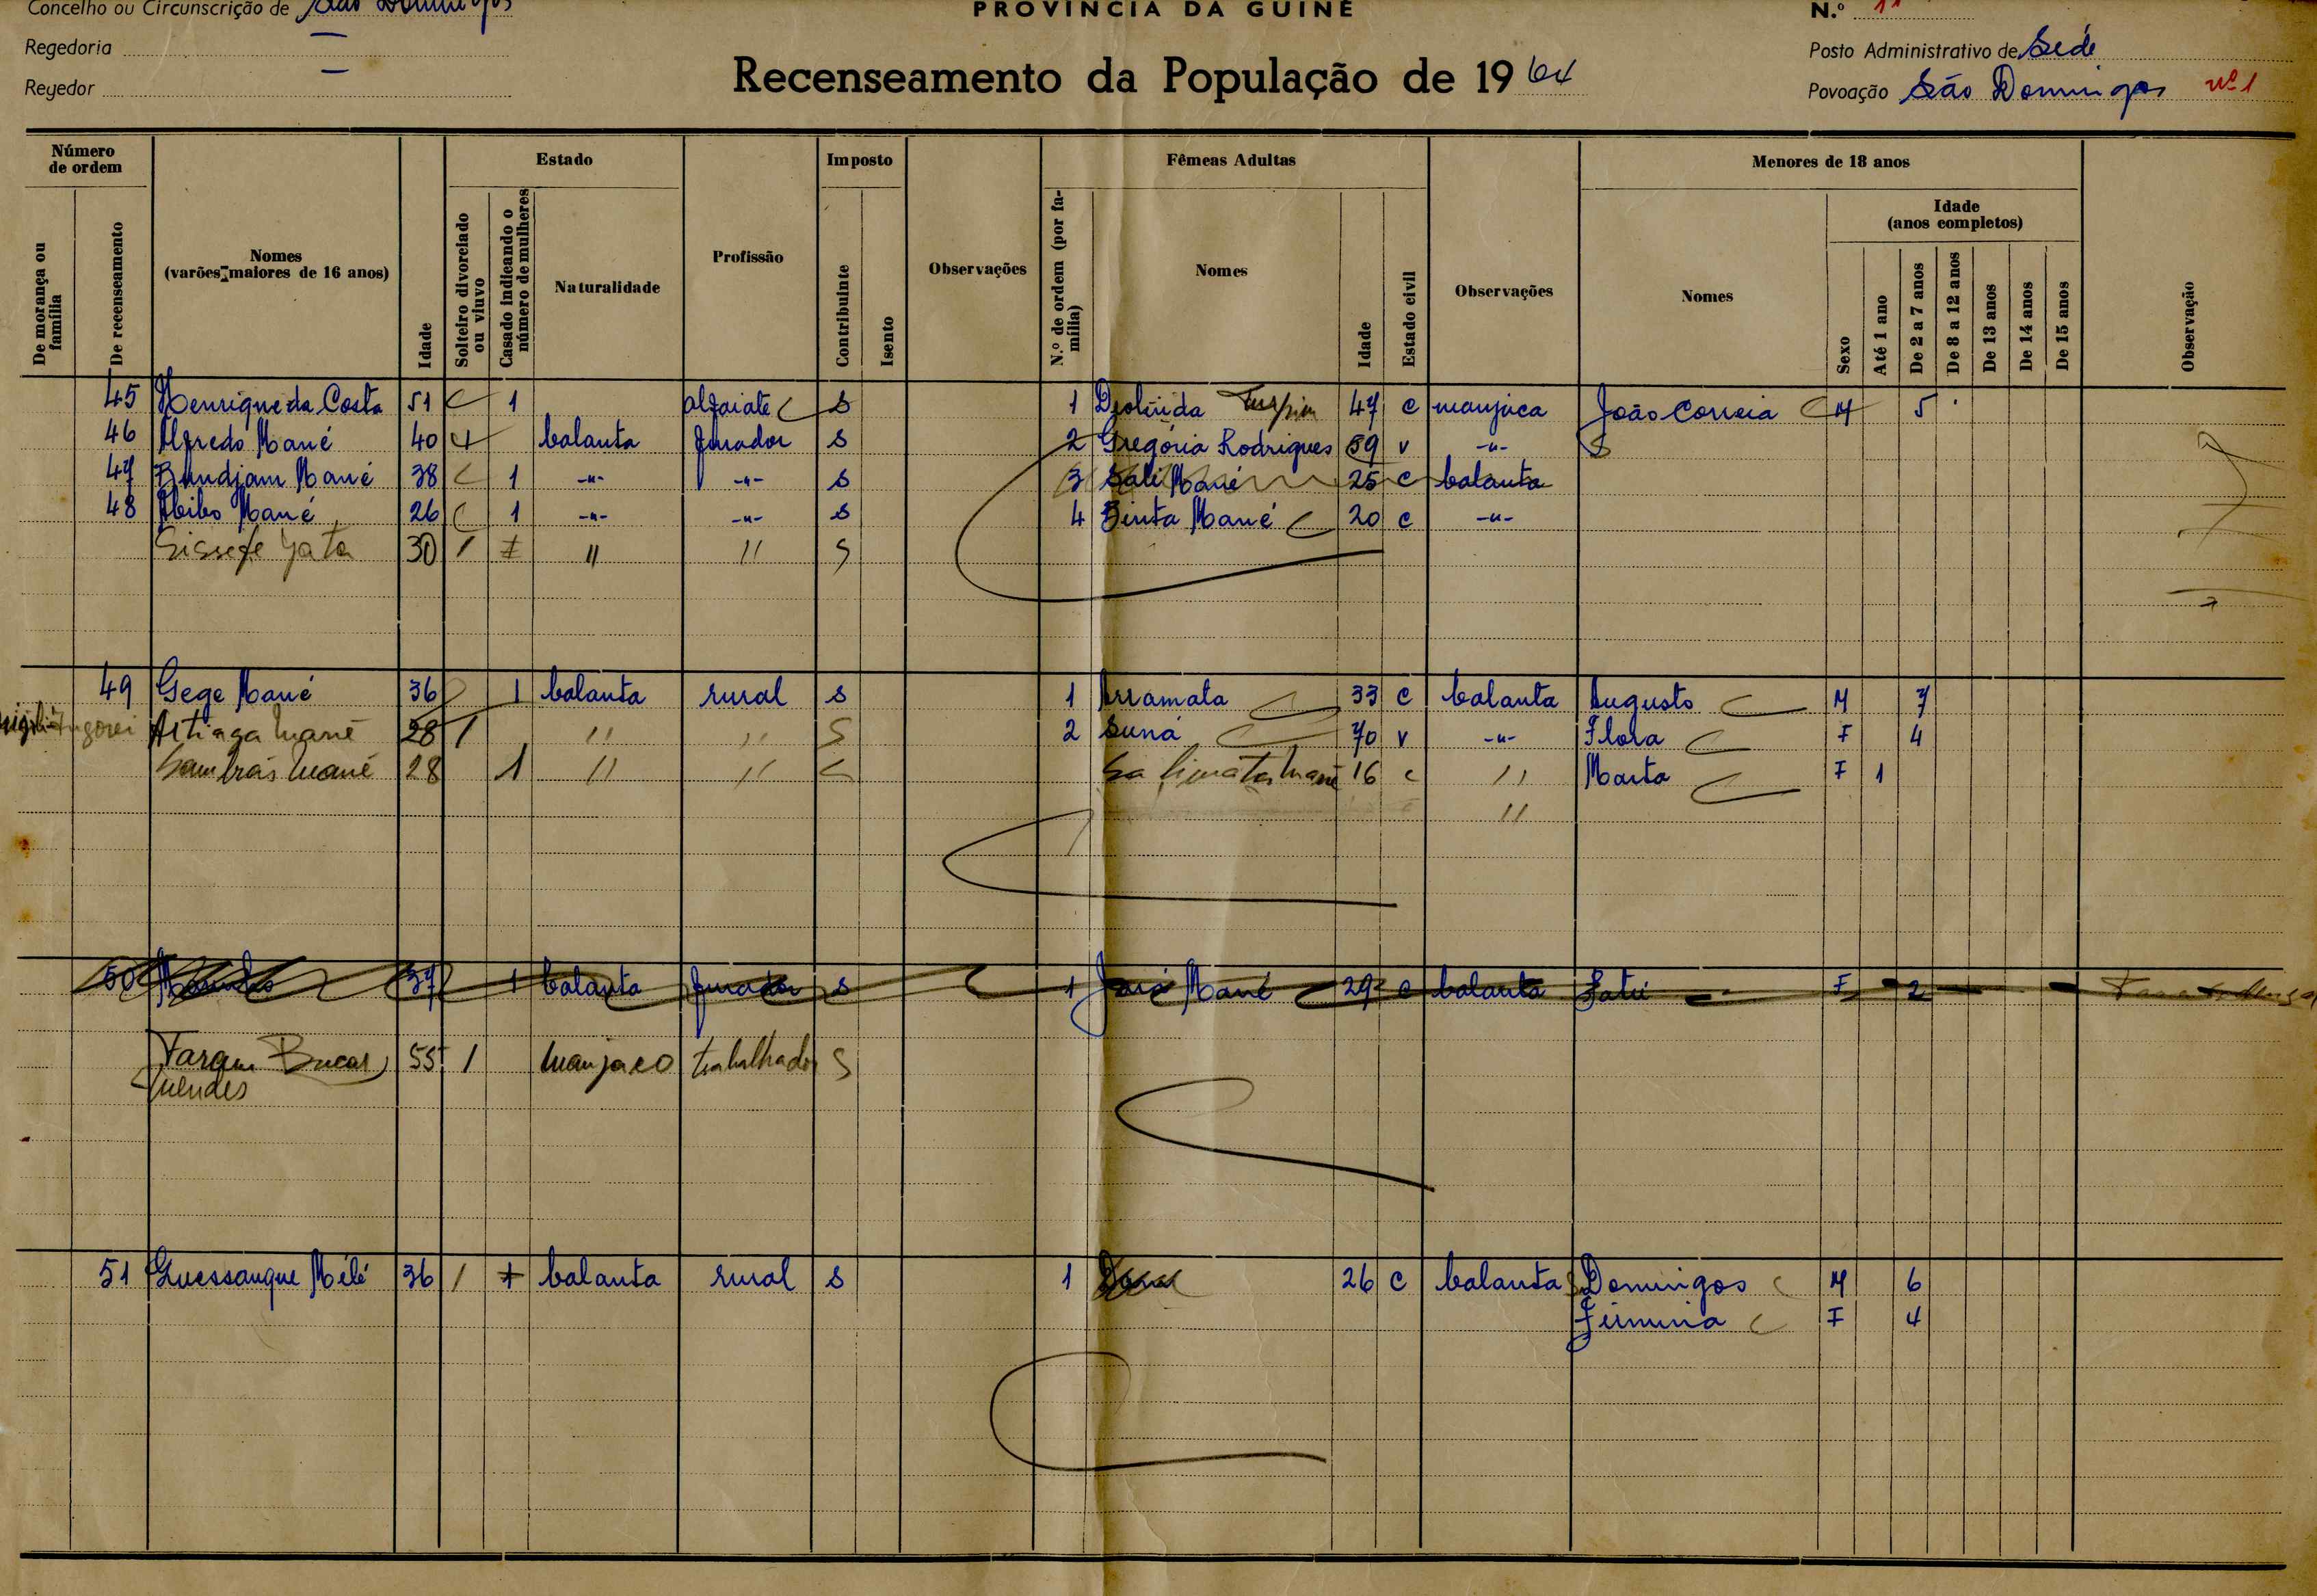 Concelho ou Circunscrição de São Domingos
PROVÍNCIA DA GUINÉ
N.º 11
Regedoria —
Posto Administrativo de Sede
Regedor —
Recenseamento da População de 1964
Povoação São Domingos nº 1
Número de ordem
Estado
Imposto
Fêmeas Adultas
Menores de 18 anos
De morança ou família
De recenseamento
Nomes (varões maiores de 16 anos)
Idade
Solteiro divorciado ou viuvo
Casado indicando o número de mulheres
Naturalidade
Profissão
Contribuinte
Isento
Observações
N.º de ordem (por família)
Nomes
Idade
Estado civil
Observações
Nomes
Sexo
Idade (anos completos)
Até 1 ano
De 2 a 7 anos
De 8 a 12 anos
De 13 anos
De 14 anos
De 15 anos
Observação
45 Henrique da Costa 51 1 alfaiate S 1 Deolinda 47 c manjaca João Correia M 5
46 Alfredo Mané 40 balanta furador S 2 Gregória Rodrigues 59 v -"- S
47 Bundjam Mané 38 1 -"- -"- S 3 Sali Mané 25 c balanta
48 Abibo Mané 26 1 -"- -"- S 4 Binta Mané 20 c -"-
30 / " " S
49 Gege Mané 36 1 balanta rural S 1 Arramata 33 c balanta Augusto M 7
Ingorei Astiaga Mané 28 / " " S 2 Suna 70 v -"- Flora F 4
Sambrás Mané 28 1 " " S Mané 16 c " Marta F 1
"
50 37 1 balanta furador S 1 Mané 29 c balanta Fatú F 2
Faram Bucar 55 / manjaco trabalhador S
Mendes
51 Guessangue Mélé 36 / 1 balanta rural S 1 26 c balanta Domingos M 6
Firmina F 4